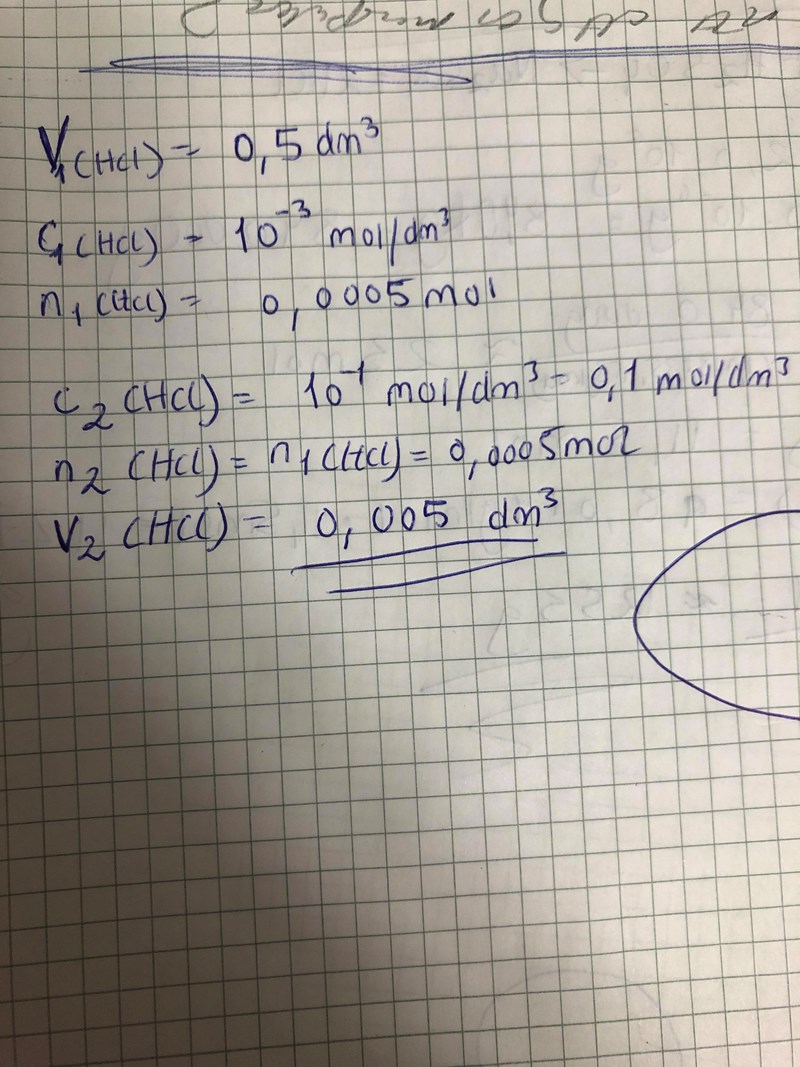 V₁(HCl) = 0,5 dm³
C₁(HCl) = 10⁻³ mol/dm³
n₁(HCl) = 0,0005 mol
C₂(HCl) = 10⁻¹ mol/dm³ = 0,1 mol/dm³
n₂(HCl) = n₁(HCl) = 0,0005 mol
V₂(HCl) = 0,005 dm³